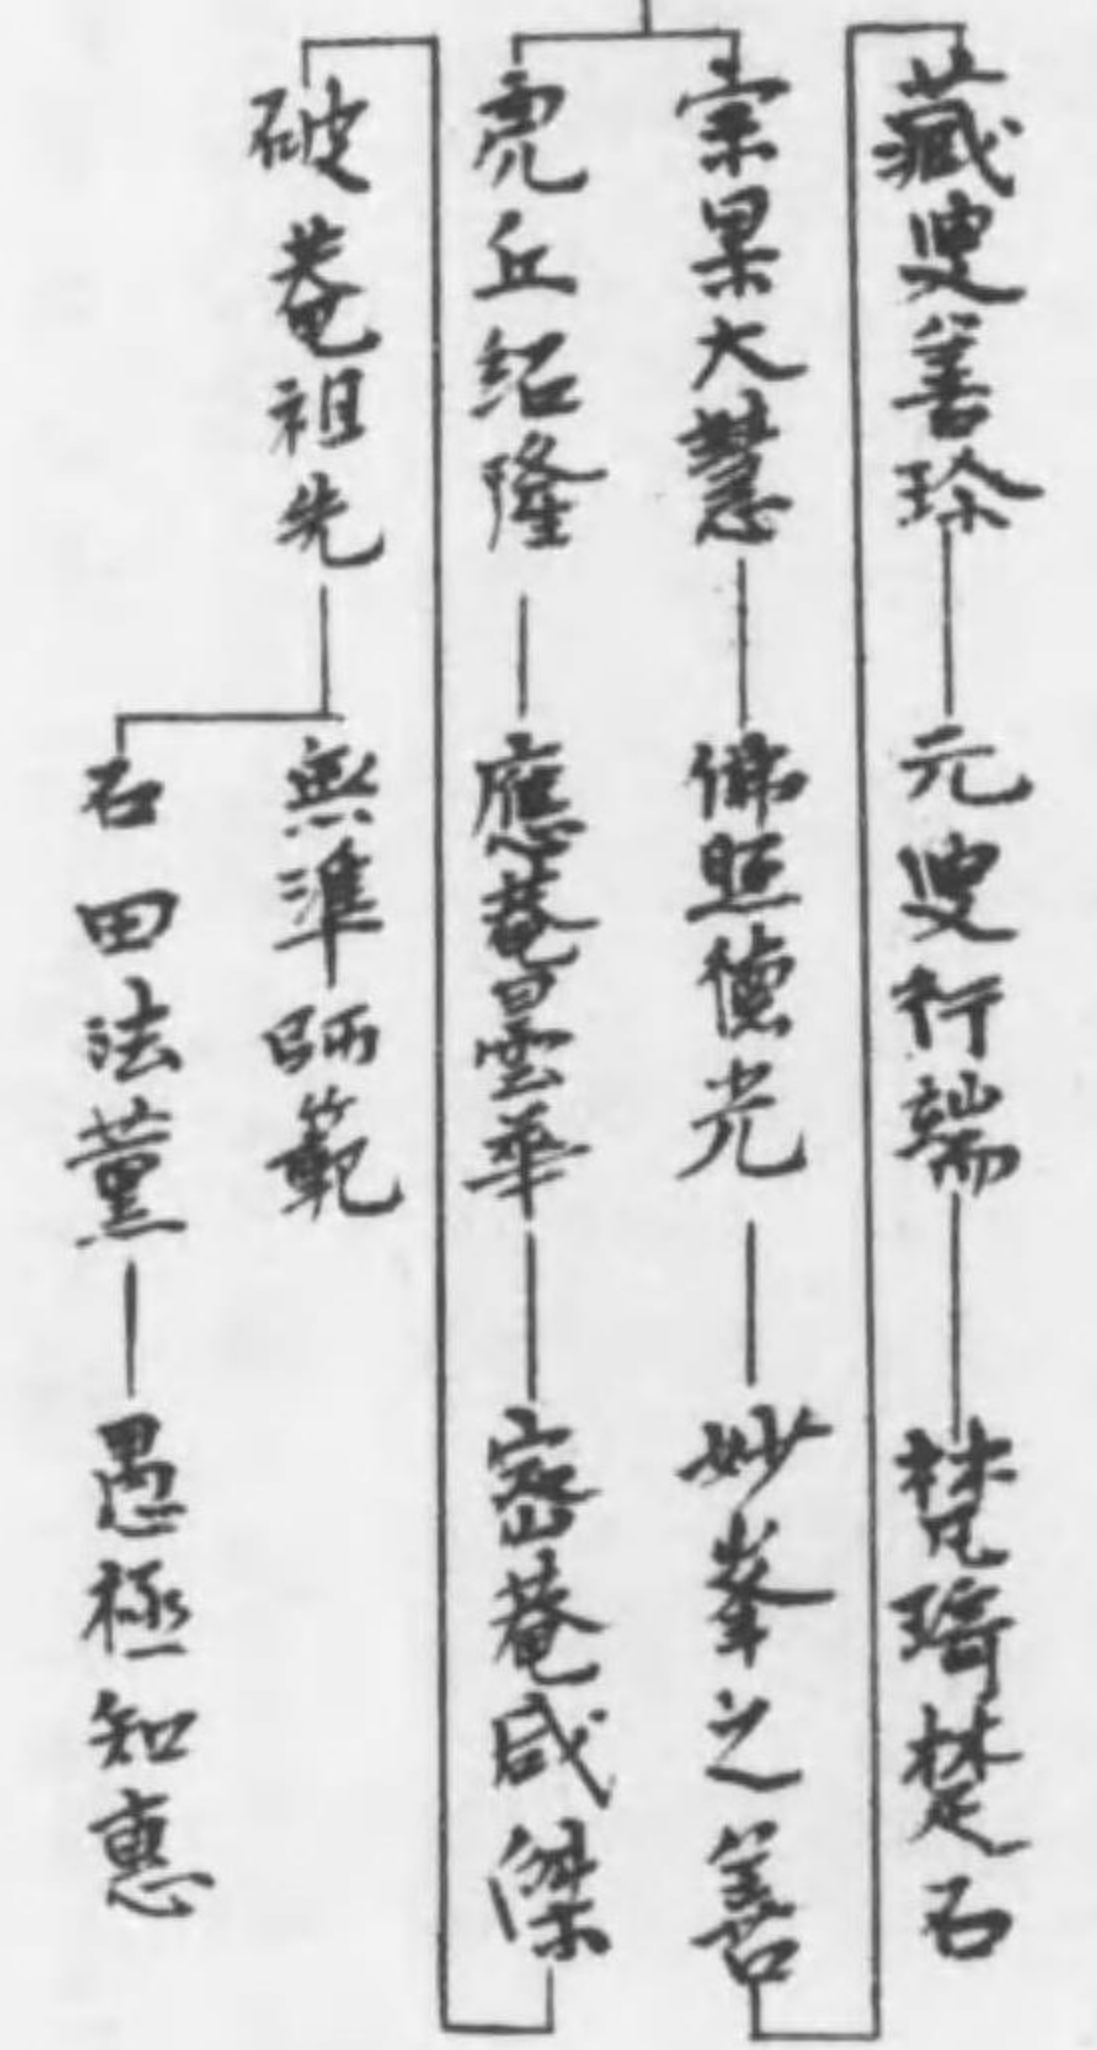 藏叟善珍
元叟行端
梵琦楚石
宗杲大慧
佛照德光
妙峯之善
虎丘紹隆
應菴曇華
密菴咸傑
破菴祖先
無準師範
石田法薰
愚極知惠